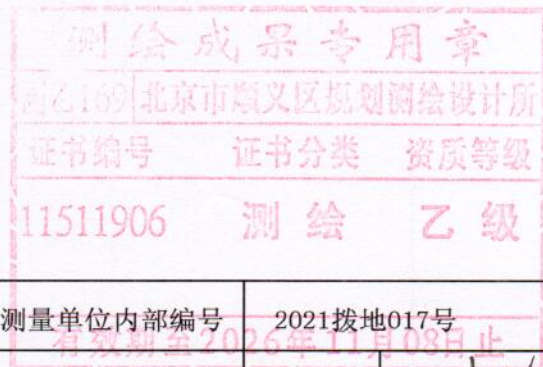 测绘成果专用章
测乙169 北京市顺义区规划测绘设计所
证书编号 证书分类 资质等级
11511906 测绘 乙级
测量单位内部编号 2021拨地017号
有效期至2026年11月08日止